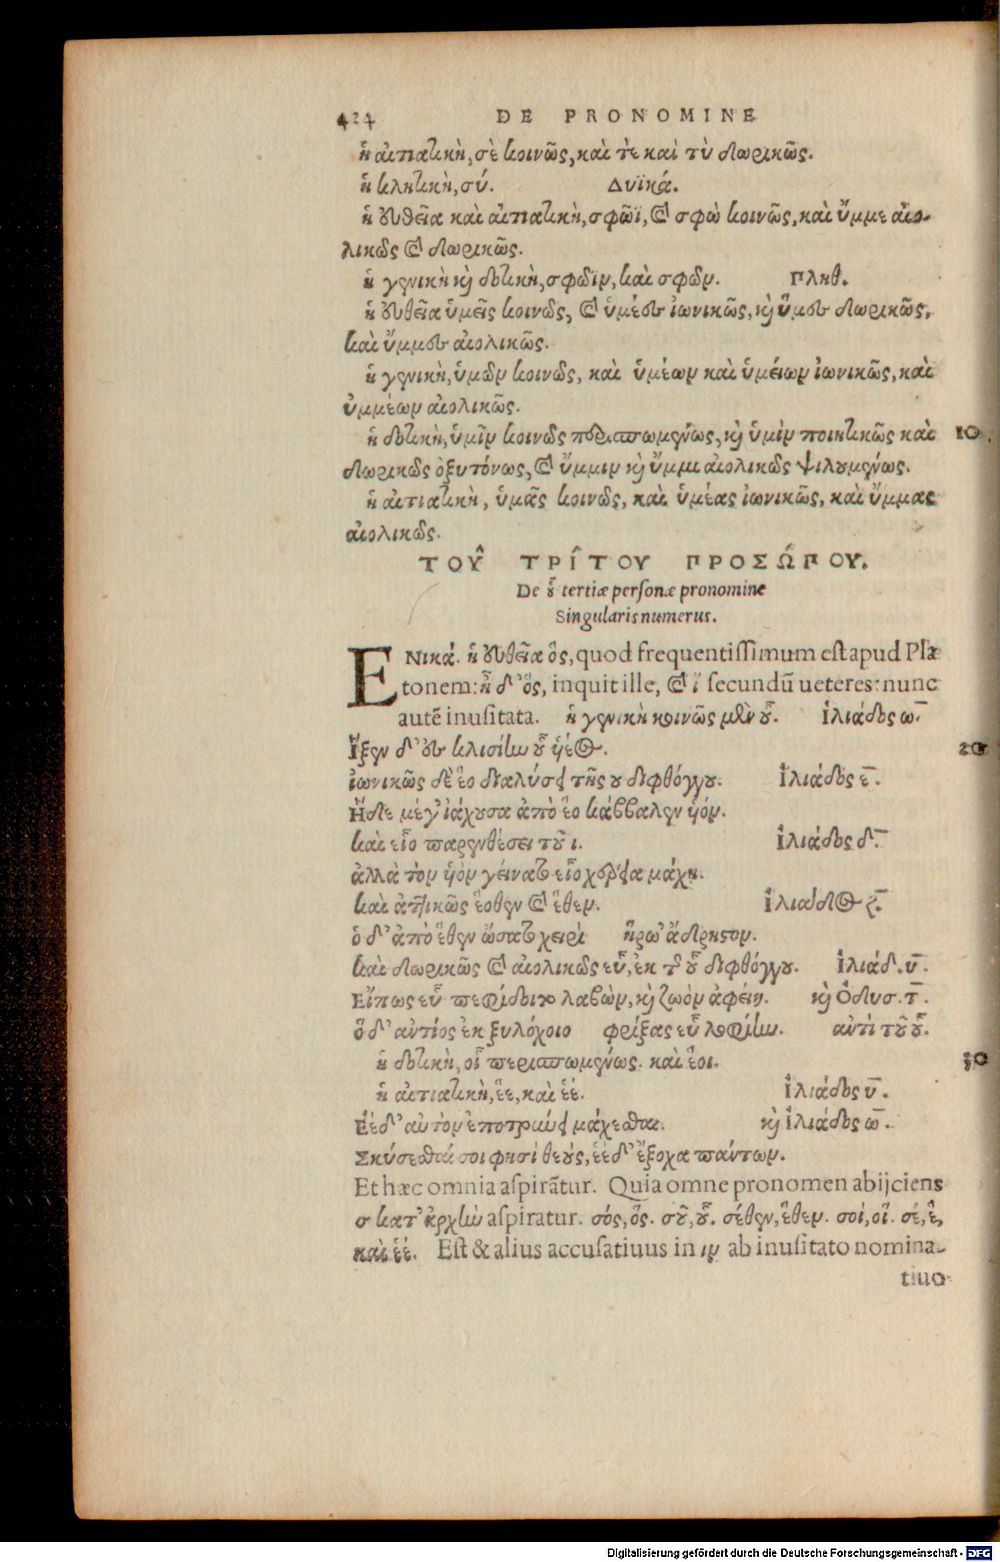 424 DE PRONOMINE
ἡ αἰτιατικὴ, σὲ κοινῶς, καὶ τὲ καὶ τὺ δωρικῶς.
ἡ κλητικὴ, σύ. Δυϊκά.
ἡ εὐθεῖα καὶ αἰτιατικὴ, σφῶϊ, & σφὼ κοινῶς, καὶ ὔμμε αἰο-
λικῶς & δωρικῶς.
ἡ γενικὴ κỳ δοτικὴ, σφῶϊν, καὶ σφῶν. Πληθ.
ἡ εὐθεῖα ὑμεῖς κοινῶς, & ὑμέες ἰωνικῶς, κỳ ὗμες δωρικῶς,
καὶ ὔμμες αἰολικῶς.
ἡ γενικὴ, ὑμῶν κοινῶς, καὶ ὑμέων καὶ ὑμείων ἰωνικῶς, καὶ
ὑμμέων αἰολικῶς.
ἡ δοτικὴ, ὑμῖν κοινῶς περισπωμένως, κỳ ὑμὶν ποιητικῶς καὶ 10
δωρικῶς ὀξυτόνως, & ὔμμιν κỳ ὔμμι αἰολικῶς ψιλουμένως.
ἡ αἰτιατικὴ, ὑμᾶς κοινῶς, καὶ ὑμέας ἰωνικῶς, καὶ ὔμμας
αἰολικῶς.
ΤΟΥ͂ ΤΡΊΤΟΥ ΠΡΟΣΏΠΟΥ.
De οὗ tertiæ personæ pronomine
Singularis numerus.
ΕΝικά. ἡ εὐθεῖα ὃς, quod frequentissimum est apud Pla
tonem: ἦ δ' ὃς, inquit ille, & ἵ secundũ ueteres: nunc
autẽ inusitata. ἡ γενικὴ κοινῶς μὲν οὗ. ἰλιάδος ω.
Ἷξεν δ' ἐς κλισίην οὗ ἡέος.
ἰωνικῶς δὲ ἕο διαλύσει τῆς ου διφθόγγου. Ἰλιάδος ε.
Ἡ δὲ μέγ' ἰάχουσα ἀπὸ ἕο κάββαλεν ἡόν.
καὶ εἷο παρενθέσει τοῦ ι. Ἰλιάδος δ.
ἀλλὰ τὸν ἡὸν γείνατο εἷο χέρηα μάχῃ.
καὶ ἀττικῶς ἕοθεν & ἕθεν. Ἰλιάδος ζ.
ὁ δ' ἀπὸ ἕθεν ὤσατο χειρὶ ἥρω' ἄδρηστον.
καὶ δωρικῶς & αἰολικῶς εὗ, ἐκ τοῦ οὗ διφθόγγου. Ἰλιάδ. υ.
Εἴπως εὗ πεφίδοιτο λαβὼν, κỳ ζωὸν ἀφείη. κỳ Ὀδυσ. τ.
ὃ δ' ἀντίος ἐκ ξυλόχοιο φρίξας εὗ λοφίην. ἀντὶ τοῦ οὗ.
ἡ δοτικὴ, οἷ περισπωμένως. καὶ ἕοι. 30
ἡ αἰτιατικὴ, ἕε, καὶ ἑέ. Ἰλιάδος υ.
Ἑὲ δ' αὐτὸν ἐποτρύνει μάχεσθαι. κỳ Ἰλιάδος ω.
Σκύσεσθαί σοι φησὶ θεούς, ἑὲ δ' ἔξοχα πάντων.
Et hæc omnia aspirãtur. Quia omne pronomen abijciens
σ κατ' ἀρχὴν aspiratur. σός, ὅς. σοῦ, οὗ. σέθεν, ἕθεν. σοί, οἷ. σέ, ἕ,
καὶ ἑέ. Est & alius accusatiuus in ιν ab inusitato nomina-
tiuo
Digitalisierung gefördert durch die Deutsche Forschungsgemeinschaft - DFG